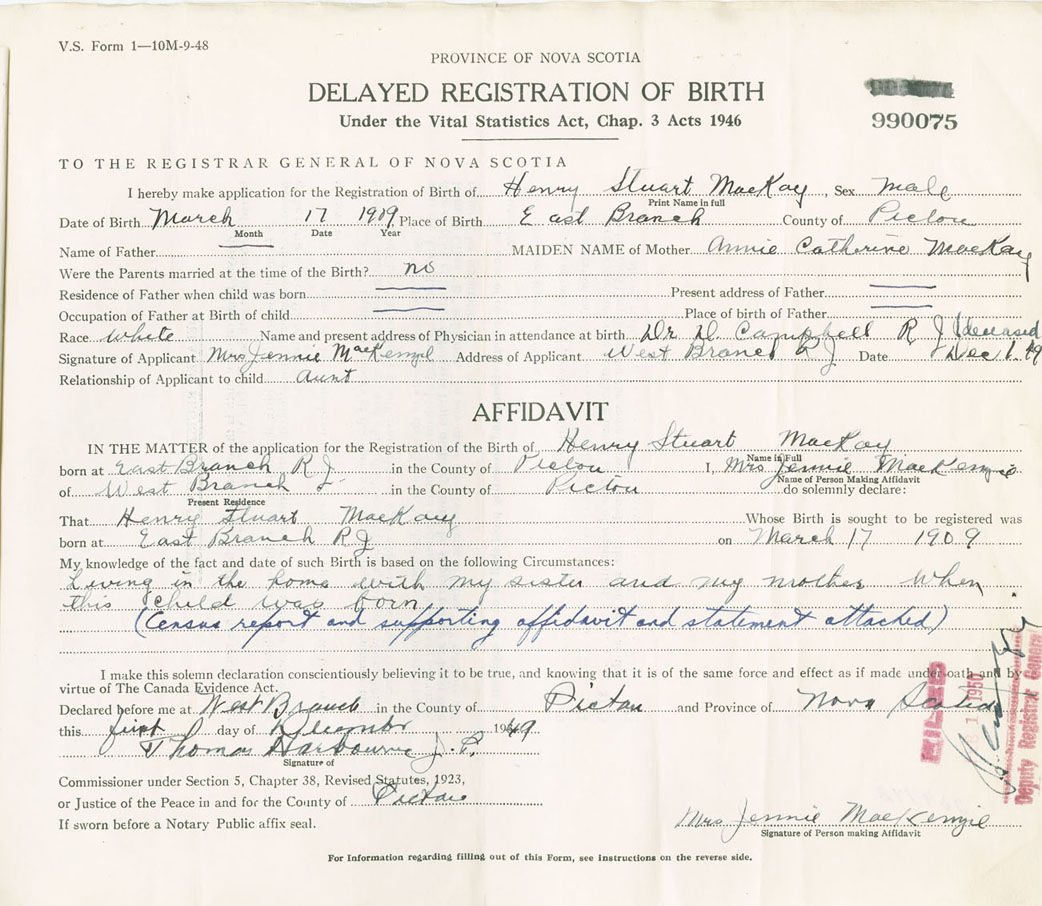 V.S. Form 1—10M-9-48
PROVINCE OF NOVA SCOTIA
DELAYED REGISTRATION OF BIRTH
Under the Vital Statistics Act, Chap. 3 Acts 1946
990075
TO THE REGISTRAR GENERAL OF NOVA SCOTIA
I hereby make application for the Registration of Birth of Henry Stuart MacKay, Sex male
Print Name in full
Date of Birth March 17 1909, Place of Birth East Branch County of Pictou
Month Date Year
Name of Father MAIDEN NAME of Mother Annie Catherine MacKay
Were the Parents married at the time of the Birth? no
Residence of Father when child was born Present address of Father
Occupation of Father at Birth of child Place of birth of Father
Race White Name and present address of Physician in attendance at birth Dr D. Campbell R J (deceased
Signature of Applicant Mrs Jennie MacKenzie Address of Applicant West Branch R J Date Dec 1. 49
Relationship of Applicant to child aunt
AFFIDAVIT
IN THE MATTER of the application for the Registration of the Birth of Henry Stuart MacKay
Name in Full
born at East Branch R J in the County of Pictou I, Mrs Jennie MacKenzie
Name of Person Making Affidavit
of West Branch J in the County of Pictou do solemnly declare:
Present Residence
That Henry Stuart MacKay Whose Birth is sought to be registered was
born at East Branch R J on March 17 1909
My knowledge of the fact and date of such Birth is based on the following Circumstances:
Living in the home with my sister and my mother when
this child was born.
(Census report and supporting affidavit and statement attached)
I make this solemn declaration conscientiously believing it to be true, and knowing that it is of the same force and effect as if made under oath and by
virtue of The Canada Evidence Act.
Declared before me at West Branch in the County of Pictou and Province of Nova Scotia
this first day of December 1949
Thomas Harbourne J. P.
Signature of
Commissioner under Section 5, Chapter 38, Revised Statutes, 1923,
or Justice of the Peace in and for the County of Pictou
If sworn before a Notary Public affix seal.
FILED
1950
Deputy Registrar General
Mrs Jennie MacKenzie
Signature of Person making Affidavit
For Information regarding filling out of this Form, see instructions on the reverse side.